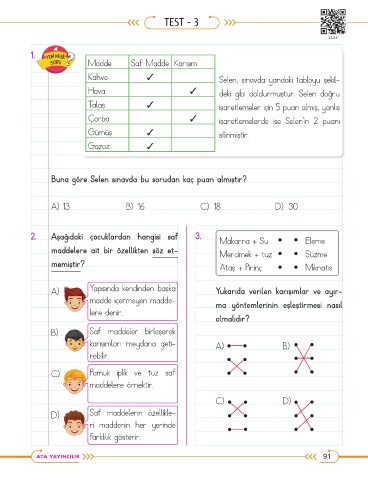 TEST - 3
1.
YENİ NESİL
SORU
Madde Saf Madde Karışım
Kahve ✓
Hava ✓
Talaş ✓
Çorba ✓
Gümüş ✓
Gazoz ✓
Selen, sınavda yandaki tabloyu şekil-
deki gibi doldurmuştur. Selen doğru
işaretlemeler için 5 puan almış, yanlış
işaretlemelerde ise Selen'in 2 puanı
silinmiştir.
Buna göre Selen sınavda bu sorudan kaç puan almıştır?
A) 13 B) 16 C) 18 D) 30
2. Aşağıdaki çocuklardan hangisi saf
maddelere ait bir özellikten söz et-
memiştir?
A) Yapısında kendinden başka
madde içermeyen madde-
lere denir.
B) Saf maddeler birleşerek
karışımları meydana geti-
rebilir.
C) Pamuk iplik ve tuz saf
maddelere örnektir.
D) Saf maddelerin özellikle-
ri maddenin her yerinde
farklılık gösterir.
3.
Makarna + Su • • Eleme
Mercimek + tuz • • Süzme
Ataş + Pirinç • • Mıknatıs
Yukarıda verilen karışımlar ve ayır-
ma yöntemlerinin eşleştirmesi nasıl
olmalıdır?
A) B)
C) D)
ATA YAYINCILIK
91